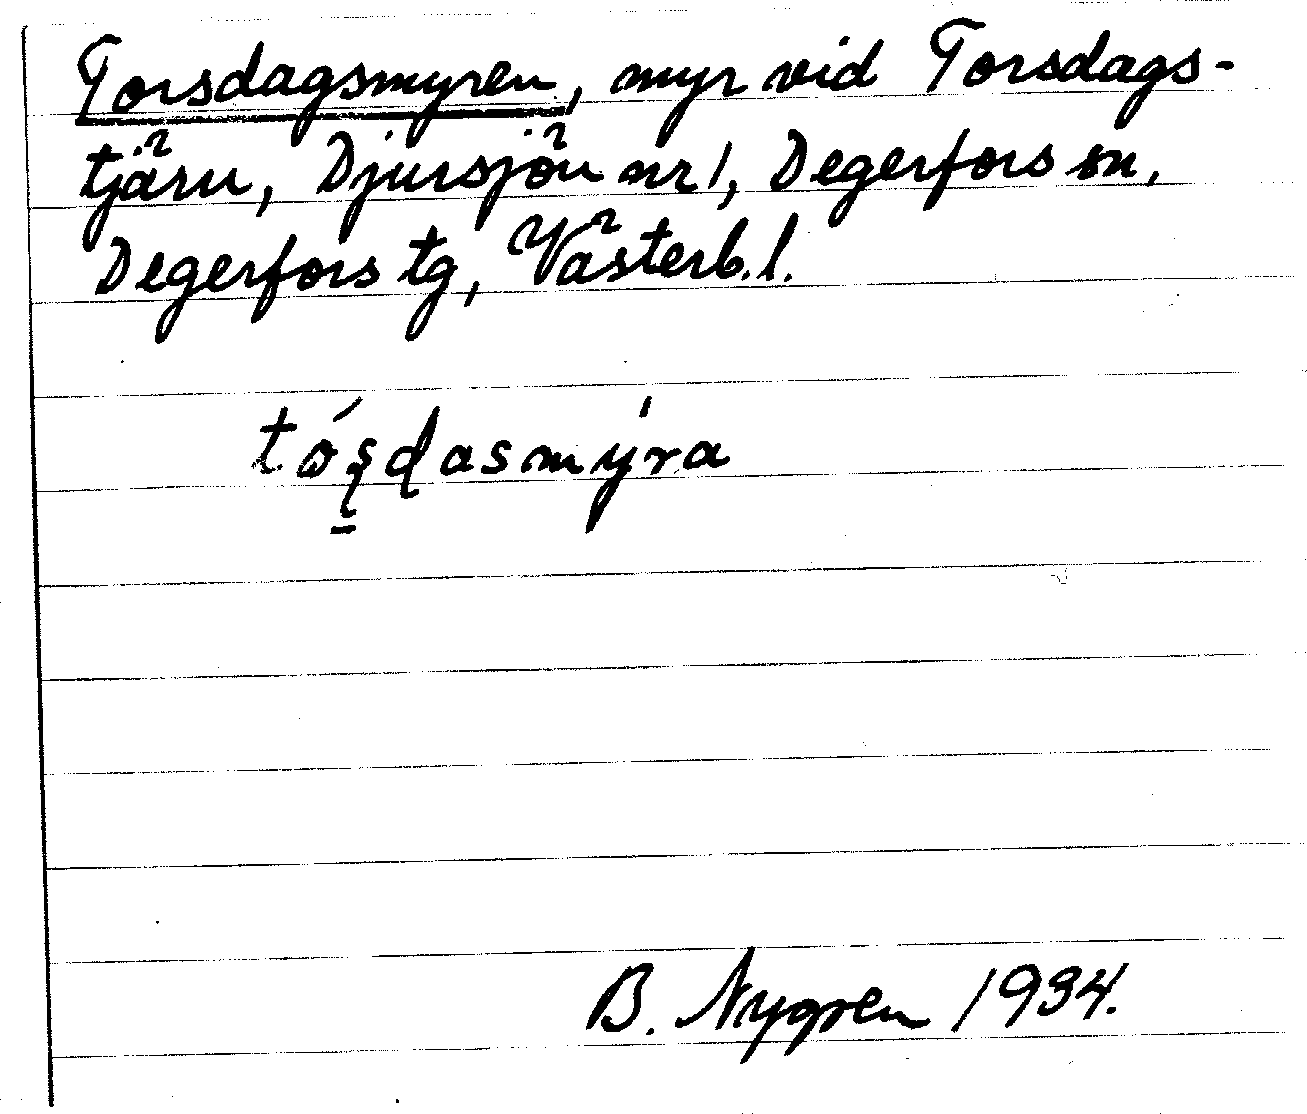 Torsdagsmyren, myr vid Torsdags-
tjärn, Djursjön nr 1, Degerfors sn,
Degerfors tg, Västerb. l.
tóşɖasmýra
B. Nygren 1934.